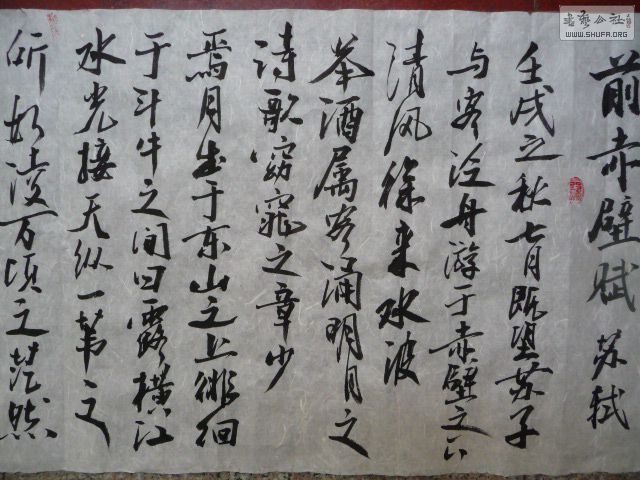 前赤壁赋 苏轼
壬戌之秋七月既望苏子
与客泛舟游于赤壁之下
清风徐来水波
举酒属客诵明月之
诗歌窈窕之章少
焉月出于东山之上徘徊
于斗牛之间白露横江
水光接天纵一苇之
所如凌万顷之茫然
书艺公社
WWW.SHUFA.ORG